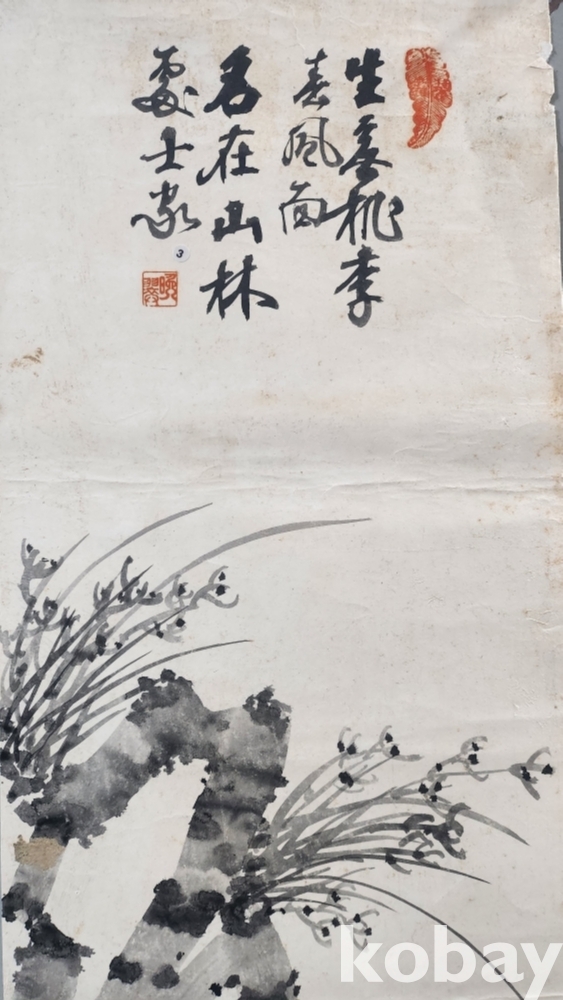 生無桃李
春風面
名在山林
處士家
3
kobay